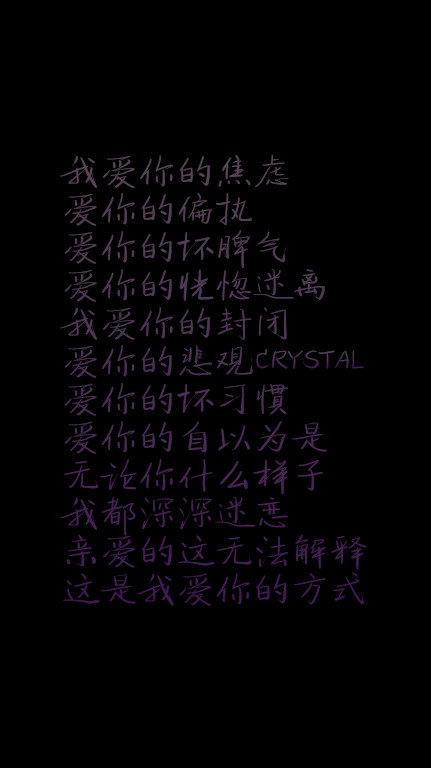 我爱你的焦虑
爱你的偏执
爱你的坏脾气
爱你的恍惚迷离
我爱你的封闭
爱你的悲观CRYSTAL
爱你的坏习惯
爱你的自以为是
无论你什么样子
我都深深迷恋
亲爱的这无法解释
这是我爱你的方式